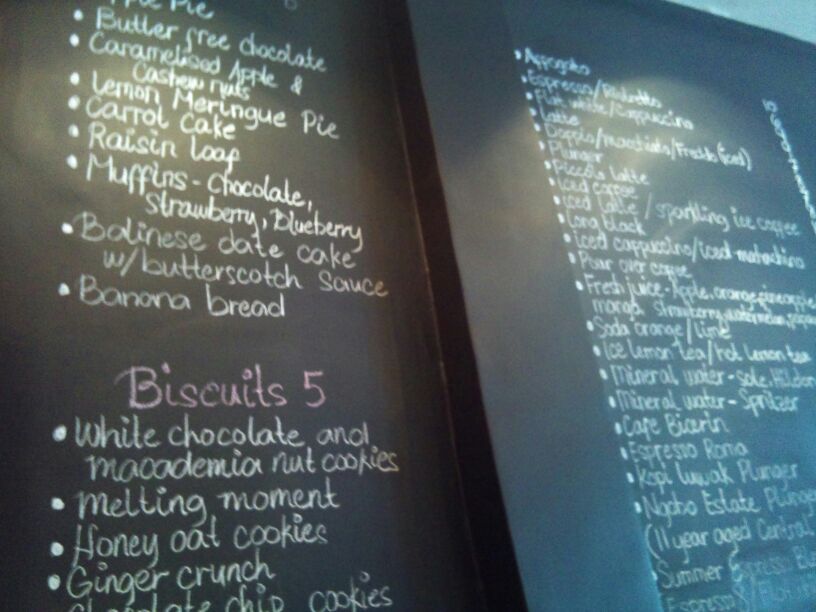 Apple Pie
• Butter free chocolate
• Caramelised Apple &
Cashew nuts
• Lemon Meringue Pie
• Carrot Cake
• Raisin loaf
• Muffins - Chocolate,
Strawberry, Blueberry
• Balinese date cake
w/butterscotch Sauce
• Banana bread
Biscuits 5
• White chocolate and
macademia nut cookies
• Melting moment
• Honey oat cookies
• Ginger crunch
Chocolate chip cookies
• Affogato
• Espresso/Ristretto
• Flat white/Cappuccino
• Latte
• Doppio/macchiato/Freddo (iced)
• Plunger
• Piccolo latte
• Iced coffee
• iced latte / sparkling ice coffee
• Long black
• iced cappuccino/iced
• Pour over coffee
• Fresh juice - Apple, orange, pineapple,
mango, strawberry, watermelon,
• Soda orange/lime
• Ice lemon tea/hot lemon tea
• Mineral water - sole,
• Mineral water - Spritzer
• Cafe Bicerin
• Espresso Roma
• Kopi luwak Plunger
• Estate Plunger
(11 year aged Central
• Summer Espresso
Espresso